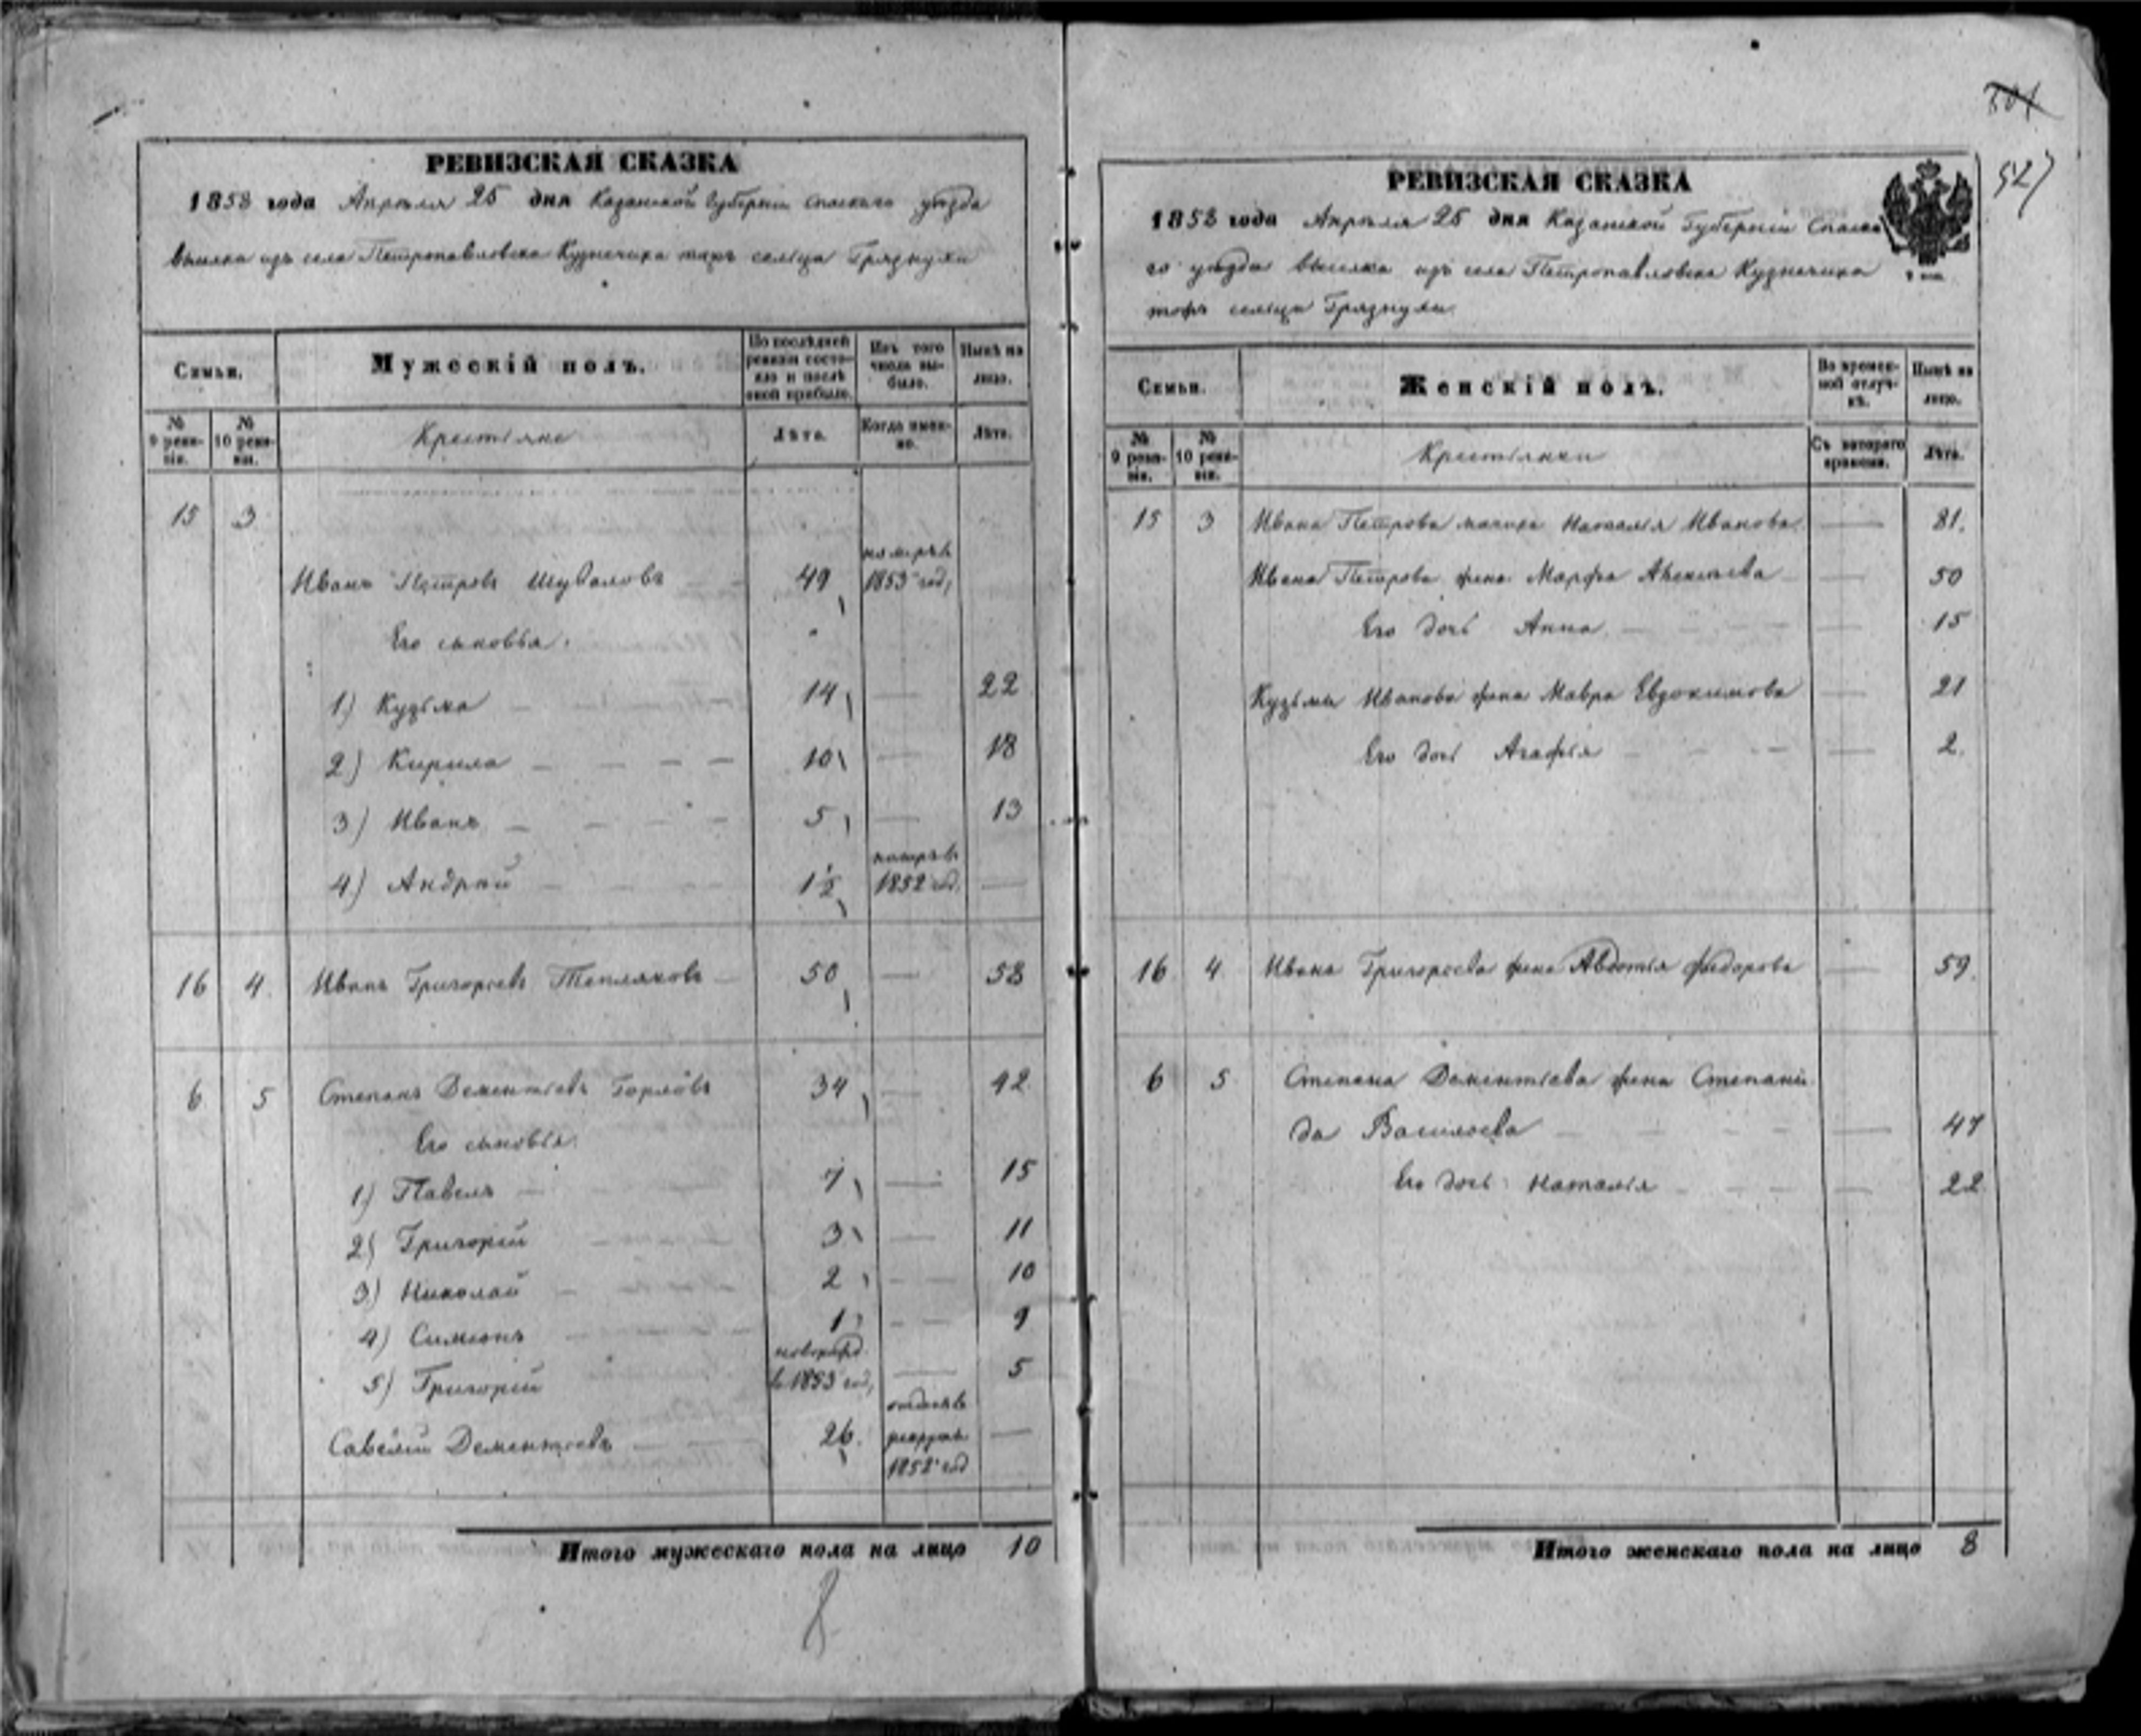 501
527
РЕВИЗСКАЯ СКАЗКА
1858 года Апреля 25 дня Казанской Губернии Спаскаго уезда
выселка изъ села Петропавловска Кузнечиха тожъ сельца Грязнухи
Семьи.
Мужескій полъ.
По послѣдней ревизіи состояло и послѣ оной прибыло.
Изъ того числа выбыло.
Нынѣ на лицо.
№ 9 ревизіи.
№ 10 ревизіи.
Крестьяне
Лѣта.
Когда именно.
Лѣта.
15 3
Иванъ Петровъ Шуваловъ 49 помре въ 1853 год,
Его сыновья.
1) Кузьма 14 22
2) Кирила 10 18
3) Иванъ 5 13
4) Андрей 1½ помре въ 1852 год.
16 4 Иванъ Григорьевъ Тепляковъ 50 58
6 5 Степанъ Дементьевъ Горловъ 34 42
Его сыновья
1) Павелъ 7 15
2) Григорій 3 11
3) Николай 2 10
4) Симионъ 1 9
5) Григорій новорожд. в 1853 год, 5
Савелій Дементьевъ 26 отданъ въ рекруты 1852 год
Итого мужескаго пола на лицо 10
8
РЕВИЗСКАЯ СКАЗКА
1858 года Апреля 25 дня Казанской Губерніи Спаска
го уезда выселка изъ села Петропавловска Кузнечиха
тожъ сельца Грязнухи.
Семьи.
Женскій полъ.
Во временной отлучкѣ.
Нынѣ на лицо.
№ 9 ревизіи.
№ 10 ревизіи.
Крестьянки
Съ котораго времени.
Лѣта.
15 3 Ивана Петрова мачиха Наталья Иванова 81.
Ивана Петрова жена Марфа 50
Его дочь Анна 15
Кузьмы Иванова жена Мавра Евдокимова 21
Его дочь Агафья 2.
16 4. Ивана Григорьева жена Авдотья Федорова 59.
6 5 Степана Дементьева жена Степани
да Васильева 47
Его дочь Наталья 22
Итого женскаго пола на лицо 8